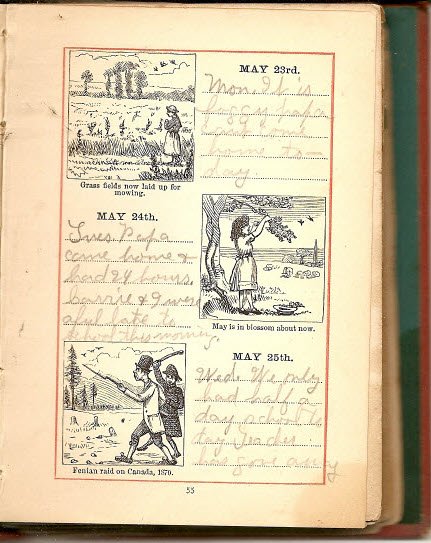 MAY 23rd.
Mon. It is
foggy papa
wont come
home to-
day.
Grass fields now laid up for
mowing.
MAY 24th.
Tues. Papa
came home &
had 24 hours.
& I were
late to
school this morning
May is in blossom about now.
MAY 25th.
Wed. We only
had half a
day school to
day Teacher
has gone away
Fenian raid on Canada, 1870.
55